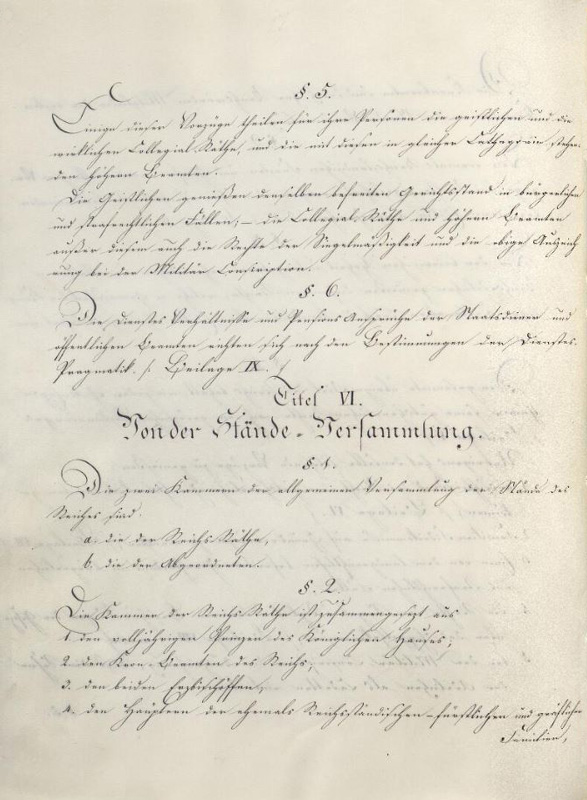 §. 5.
Einige dieser Vorzüge theilen für ihre Personen die geistlichen und die
wirklichen Collegial Räthe, und die mit diesen in gleicher Cathegorie stehen-
den höhern Beamten.
Die Geistlichen genießen denselben befreiten Gerichtsstand in bürgerlichen
und strafrechtlichen Fällen; – die Collegial Räthe und höhern Beamten
außer diesem auch die Rechte der Siegelmäßigkeit und die obige Auszeich
nung bei der Militär Conscription.
§. 6.
Die Dienstes Verhältnisse und Pensions Ansprüche der Staatsdiener und
öffentlichen Beamten richten sich nach den Bestimmungen der Dienstes-
Pragmatik. /: Beilage IX. :/
Titel VI.
Von der Stände-Versammlung.
§. 1.
Die zwei Kammern der allgemeinen Versammlung der Stände des
Reiches sind
a. die der Reichs Räthe,
b. die der Abgeordneten.
§. 2.
Die Kammer der Reichs Räthe ist zusammengesezt aus
1. den volljährigen Prinzen des Königlichen Hauses;
2. den Kron-Beamten des Reichs;
3. den beiden Erzbischöffen,
4. den Häuptern der ehemals Reichsständischen-fürstlichen und gräflichen
Familien,